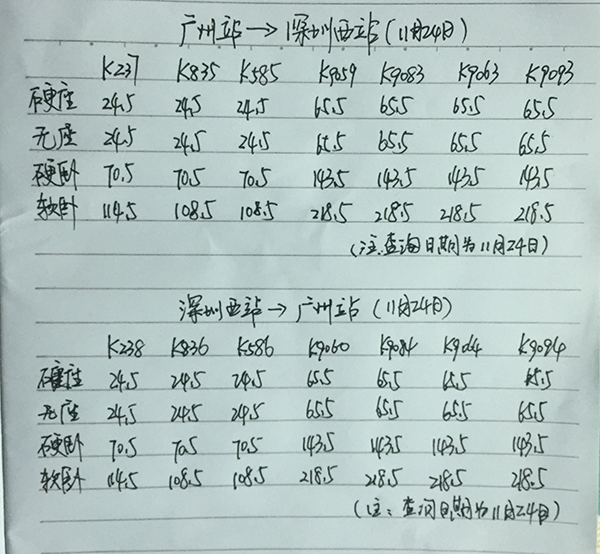 广州站→深圳西站(11月24日)
K237 K835 K585 K9059 K9083 K9063 K9093
硬座 24.5 24.5 24.5 65.5 65.5 65.5 65.5
无座 24.5 24.5 24.5 65.5 65.5 65.5 65.5
硬卧 70.5 70.5 70.5 143.5 143.5 143.5 143.5
软卧 114.5 108.5 108.5 218.5 218.5 218.5 218.5
(注:查询日期为11月24日)
深圳西站→广州站(11月24日)
K238 K836 K586 K9060 K9084 K9064 K9094
硬座 24.5 24.5 24.5 65.5 65.5 65.5 65.5
无座 24.5 24.5 24.5 65.5 65.5 65.5 65.5
硬卧 70.5 70.5 70.5 143.5 143.5 143.5 143.5
软卧 114.5 108.5 108.5 218.5 218.5 218.5 218.5
(注:查询日期为11月24日)